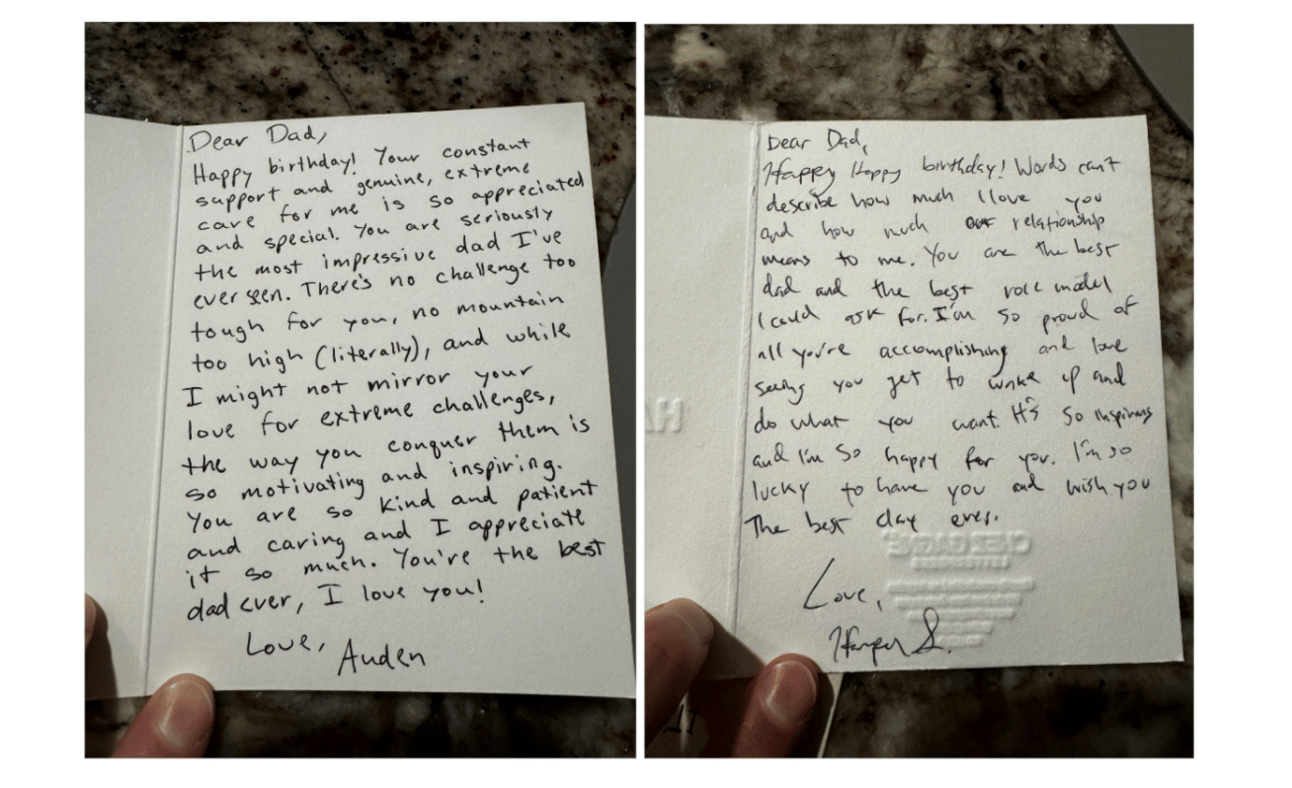 Dear Dad,
Happy birthday! Your constant
support and genuine, extreme
care for me is so appreciated
and special. You are seriously
the most impressive dad I've
ever seen. There's no challenge too
tough for you, no mountain
too high (literally), and while
I might not mirror your
love for extreme challenges,
the way you conquer them is
so motivating and inspiring.
You are so kind and patient
and caring and I appreciate
it so much. You're the best
dad ever, I love you!
Love,
Auden
Dear Dad,
Happy Happy birthday! Words can't
describe how much I love you
and how much our relationship
means to me. You are the best
dad and the best role model
I could ask for. I'm so proud of
all you're accomplishing and love
seeing you get to wake up and
do what you want. It's so inspiring
and I'm so happy for you. I'm so
lucky to have you and wish you
The best day ever.
Love,
Harper S.